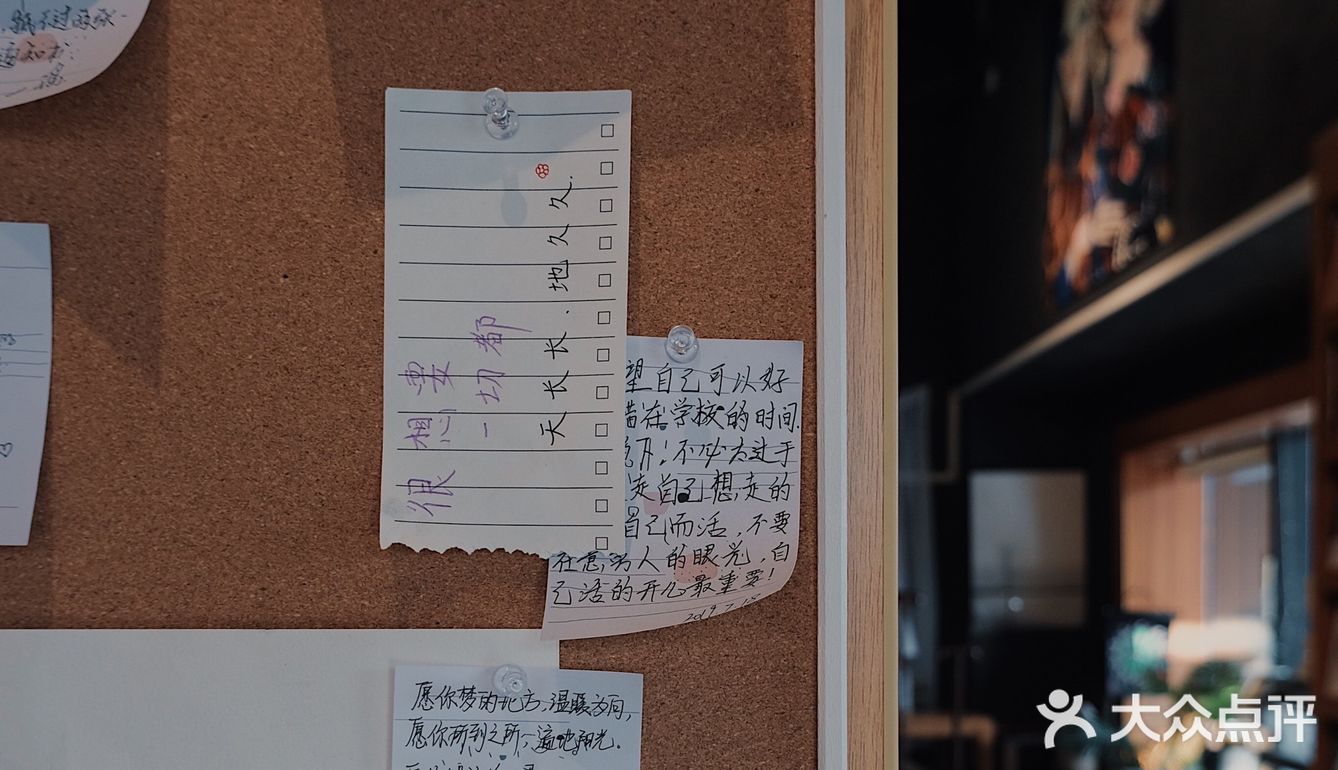 很想要
一切都
天长长.地久久.
望自己可以好
在学校的时间.
!不必太过于
走自己想走的
自己而活,不要
在意别人的眼光,自
己活的开心最重要!
2019.7.18
愿你梦的地方,温暖为向,
愿你所到之所,遍地阳光.
大众点评